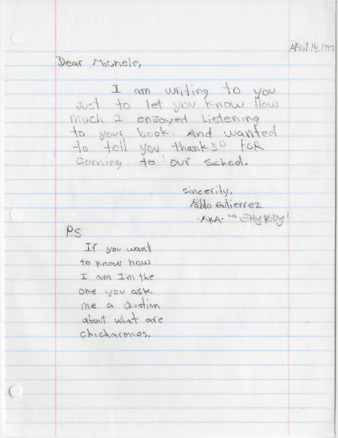 April 14, 1997
Dear Michele,
I am writing to you
Just to let you know How
much I enjoyed Listening
to your book. And wanted
to tell you thanks FOR
coming to our School.
sincerily,
Aldo Gutierrez
AKA. "Shy Boy"
P.S
If you want
to know how
I am I'm the
one you ask
me a Qustion
about what are
chicharones.